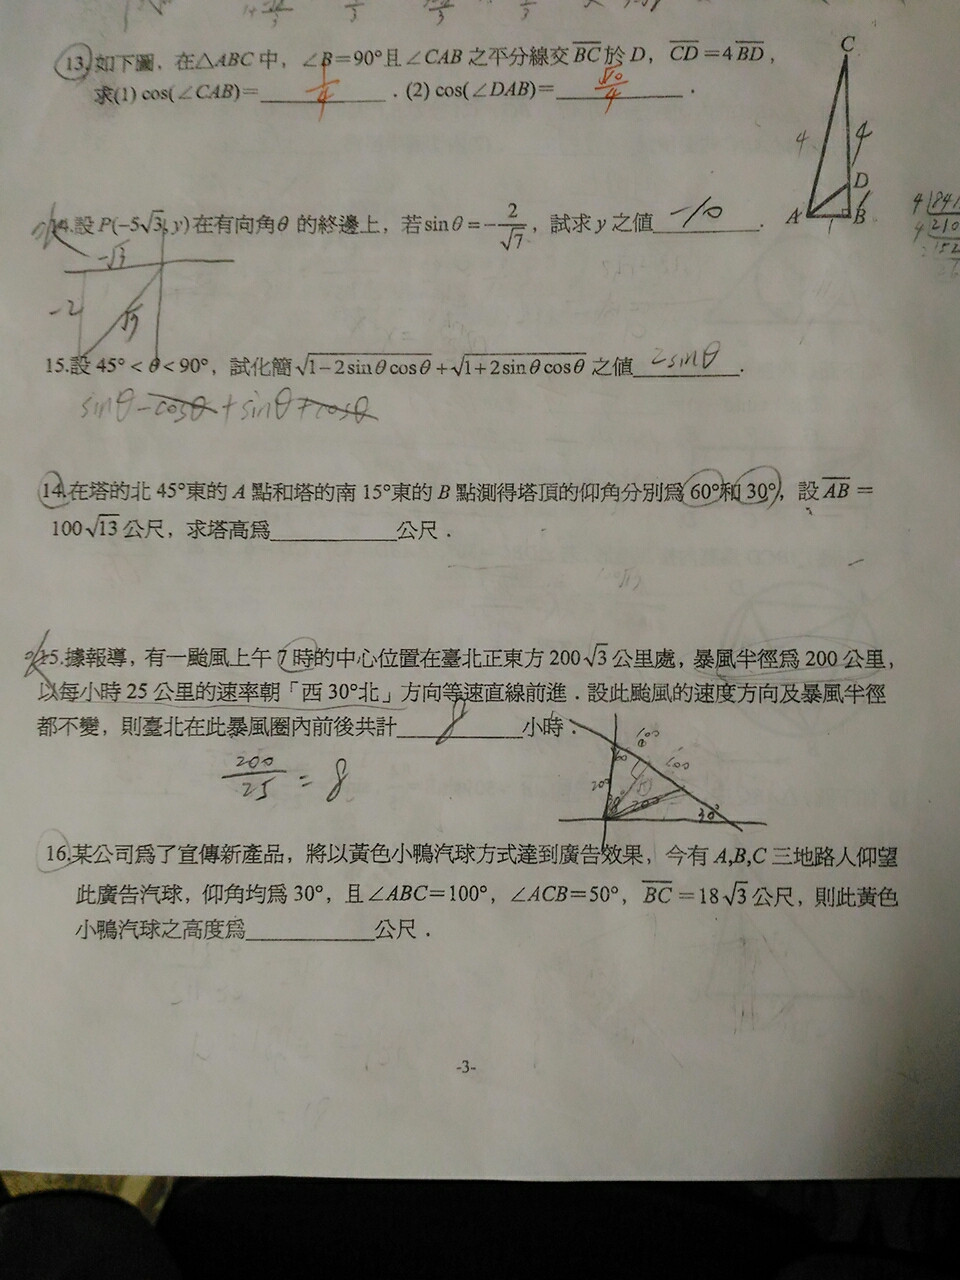 13.如下圖，在△ABC 中，∠B=90°且∠CAB 之平分線交 BC 於 D，CD=4BD，
求(1) cos(∠CAB)= 1/4 ．(2) cos(∠DAB)= √10/4 ．
C
4
4
D
A
1
B
1
14.設 P(-5√3, y)在有向角θ 的終邊上，若 sinθ=-2/√7，試求 y 之值 -10 ．
-√3
-2
√7
15.設 45°<θ<90°，試化簡√1-2sinθcosθ+√1+2sinθcosθ 之值 2sinθ ．
sinθ-cosθ+sinθ+cosθ
14.在塔的北 45°東的 A 點和塔的南 15°東的 B 點測得塔頂的仰角分別為 60°和 30°，設 AB =
100√13 公尺，求塔高為 公尺．
15.據報導，有一颱風上午 7 時的中心位置在臺北正東方 200√3 公里處，暴風半徑為 200 公里，
以每小時 25 公里的速率朝「西 30°北」方向等速直線前進．設此颱風的速度方向及暴風半徑
都不變，則臺北在此暴風圈內前後共計 8 小時．
200/25 = 8
60
100
100
200
200
30°
16.某公司為了宣傳新產品，將以黃色小鴨汽球方式達到廣告效果，今有 A,B,C 三地路人仰望
此廣告汽球，仰角均為 30°，且∠ABC=100°，∠ACB=50°，BC =18√3 公尺，則此黃色
小鴨汽球之高度為 公尺．
-3-